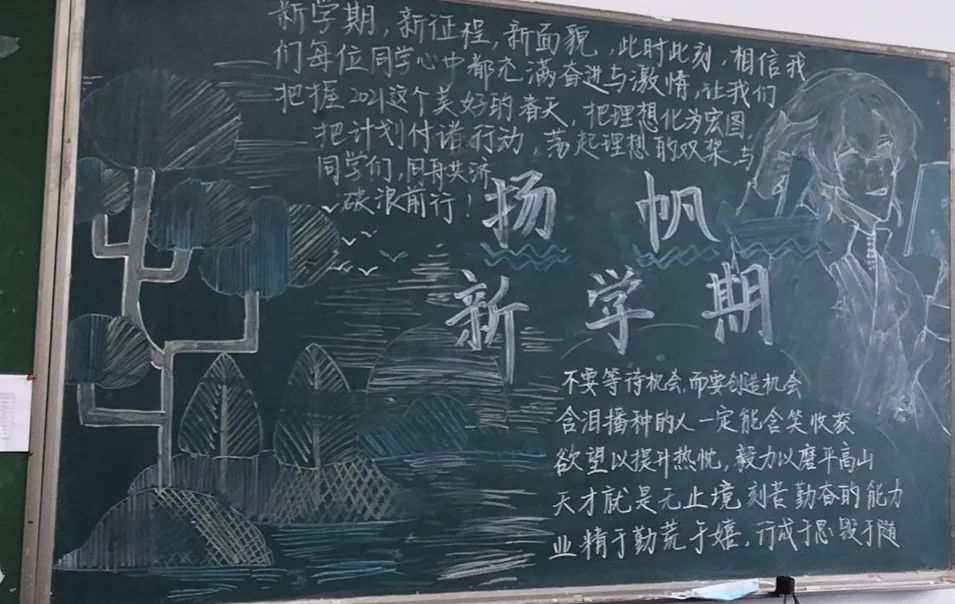 新学期,新征程,新面貌,此时此刻,相信我
们每位同学心中都充满奋进与激情,让我们
把握2021这个美好的春天,把理想化为宏图,
把计划付诸行动,荡起理想的双桨,与
同学们,同舟共济
破浪前行!
扬帆
新学期
不要等待机会,而要创造机会
含泪播种的人一定能含笑收获
欲望以提升热忱,毅力以磨平高山
天才就是无止境刻苦勤奋的能力
业精于勤荒于嬉,行成于思毁于随